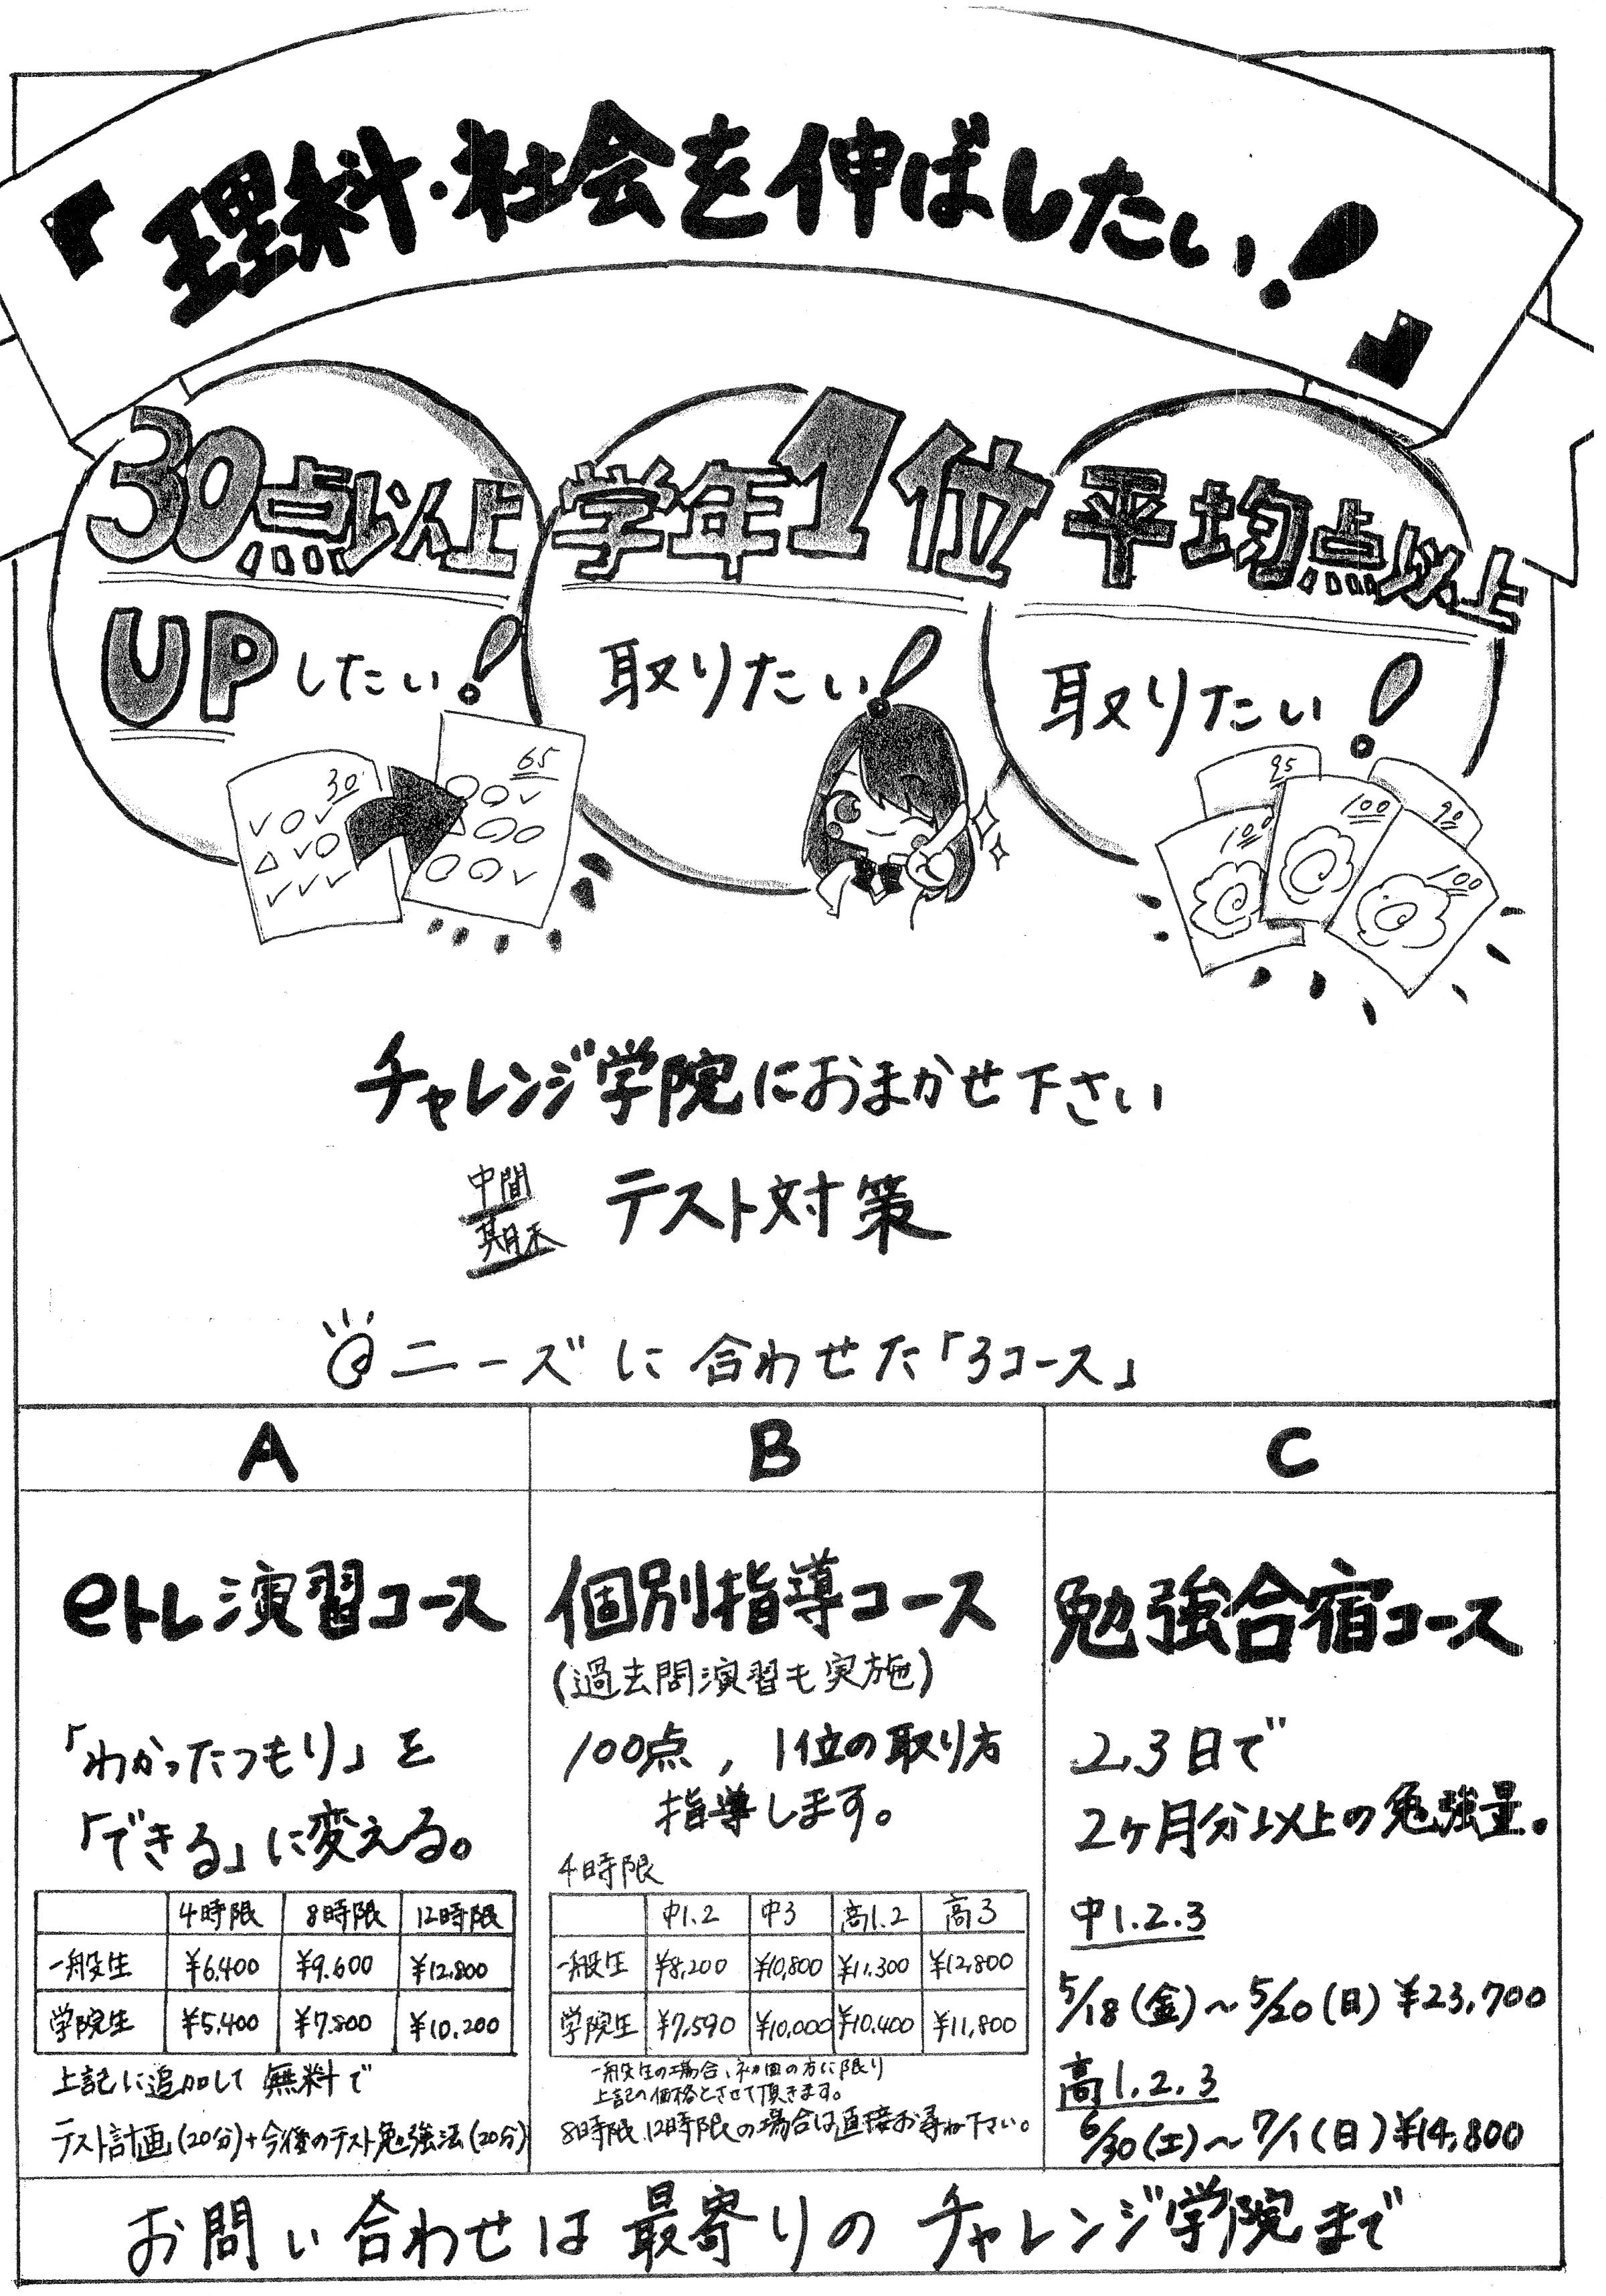 『理科・社会を伸ばしたい！』
30点以上
UPしたい！
学年1位
取りたい！
平均点以上
取りたい！
30
65
95
100
100
90
100
チャレンジ学院におまかせ下さい
中間
期末
テスト対策
ニーズに合わせた「3コース」
A
eトレ演習コース
「わかったつもり」を
「できる」に変える。
4時限 8時限 12時限
一般生 ¥6,400 ¥9,600 ¥12,800
学院生 ¥5,400 ¥7,800 ¥10,200
上記に追加して無料で
テスト計画(20分)+今後のテスト勉強法(20分)
B
個別指導コース
(過去問演習も実施)
100点，1位の取り方
指導します。
4時限
中1.2 中3 高1.2 高3
一般生 ¥8,200 ¥10,800 ¥11,300 ¥12,800
学院生 ¥7,590 ¥10,000 ¥10,400 ¥11,800
一般生の場合、初回の方に限り
上記の価格とさせて頂きます。
8時限、12時限の場合は直接お尋ね下さい。
C
勉強合宿コース
2,3日で
2ヶ月分以上の勉強量。
中1.2.3
5/18(金)～5/20(日)¥23,700
高1.2.3
6/30(土)～7/1(日)¥14,800
お問い合わせは最寄りのチャレンジ学院まで